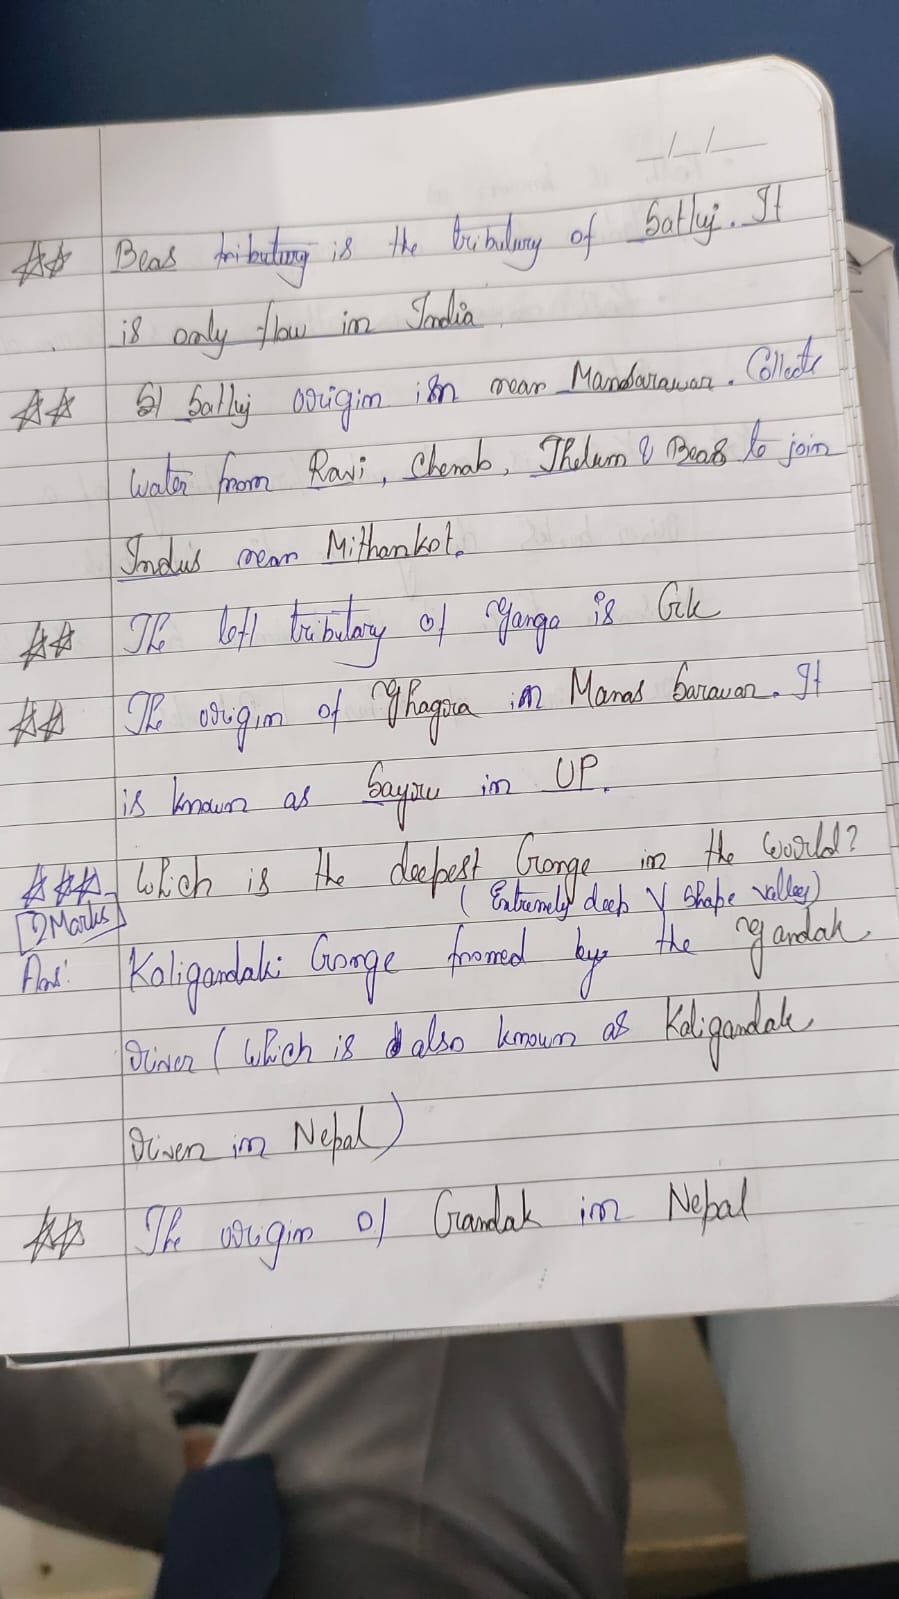 _/_/__
☆☆ Beas tributary is the tributary of Satluj. It
is only flow in India
☆☆ Satluj origin is in near Mansarawar. Collects
water from Ravi, Chenab, Jhelum & Beas to join
Indus near Mithankot.
☆☆ The left tributary of Ganga is
☆☆ The origin of Ghagra in Manas Sarawar. It
is known as in UP.
☆☆☆ Which is the deepest Gorge in the world?
[2 Marks] (Extremely deep V shape valley)
Ans: Kaligandaki Gorge fromed by the Gandak
River (which is also known as Kaligandak
River in Nepal)
☆☆ The origin of Gandak in Nepal